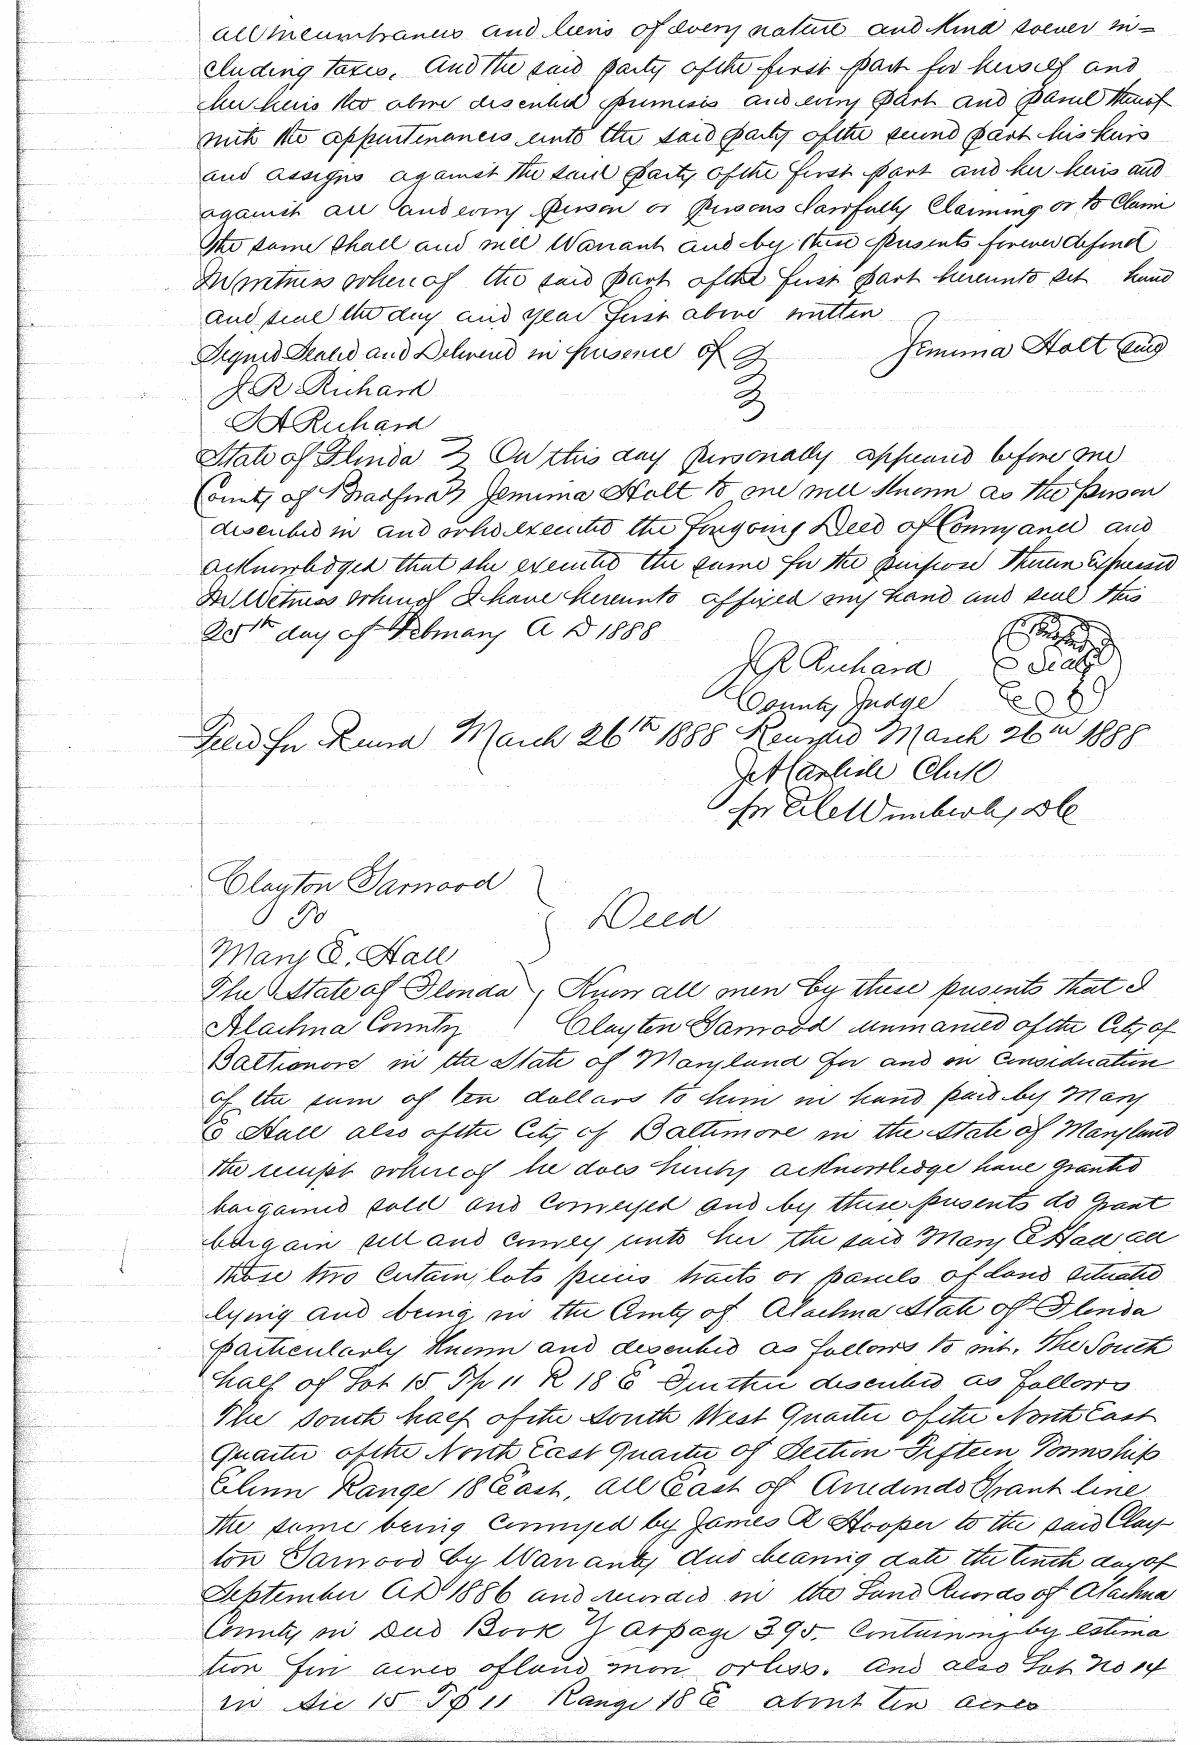 all incumbrances and liens of every nature and kind soever in=
cluding taxes. And the said party of the first part for herself and
her heirs the above described premises and every part and parcel thereof
with the appurtenances unto the said party of the second part his heirs
and assigns against the said party of the first part and her heirs and
against all and every person or persons lawfully claiming or to claim
the same shall and will Warrant and by these presents forever defend
In witness whereof the said part of the first part hereunto set hand
and seal the day and year first above written
Signed Sealed and Delivered in presence of Jemima Holt seal
J R Richard
Richard
State of Florida On this day personally appeared before me
County of Bradford Jemima Holt to me well known as the person
described in and who executed the forgoing Deed of Conveyance and
acknowledged that she executed the same for the purpose therein expressed
In Witness whereof I have hereunto affixed my hand and seal this
25th day of February A D 1888
J R Richard Seal
County Judge
Filed for Record March 26th 1888 Recorded March 26th 1888
J A Carlisle Clerk
for Wimberly, D C
Clayton Garwood
To
Deed
Mary E. Hall
The State of Florida Know all men by these presents that I
Alachua County Clayton Garwood unmarried of the City of
Baltimore in the State of Maryland for and in consideration
of the sum of ten dollars to him in hand paid by Mary
E Hall also of the City of Baltimore in the State of Maryland
the receipt whereof he does hereby acknowledge have granted
bargained sold and conveyed and by these presents do grant
bargain sell and convey unto her the said Mary E Hall all
those two certain lots pieces tracts or parcels of land situated
lying and being in the County of Alachua State of Florida
particularly known and described as follows to wit. The South
half of Lot 15 Tp 11 R 18 E Further described as follows
The south half of the South West Quarter of the North East
Quarter of the North East Quarter of Section Fifteen Township
Eleven Range 18 East, All East of Arredondo Grant line
the same being conveyed by James R Hooper to the said Clay
ton Garwood by Warranty deed bearing date the tenth day of
September AD 1886 and recorded in the Land Records of Alachua
County in Deed Book Y at page 395. Containing by estima
tion five acres of land more or less. And also Lot No 14
in Sec 15 Tp 11 Range 18 E about ten acres